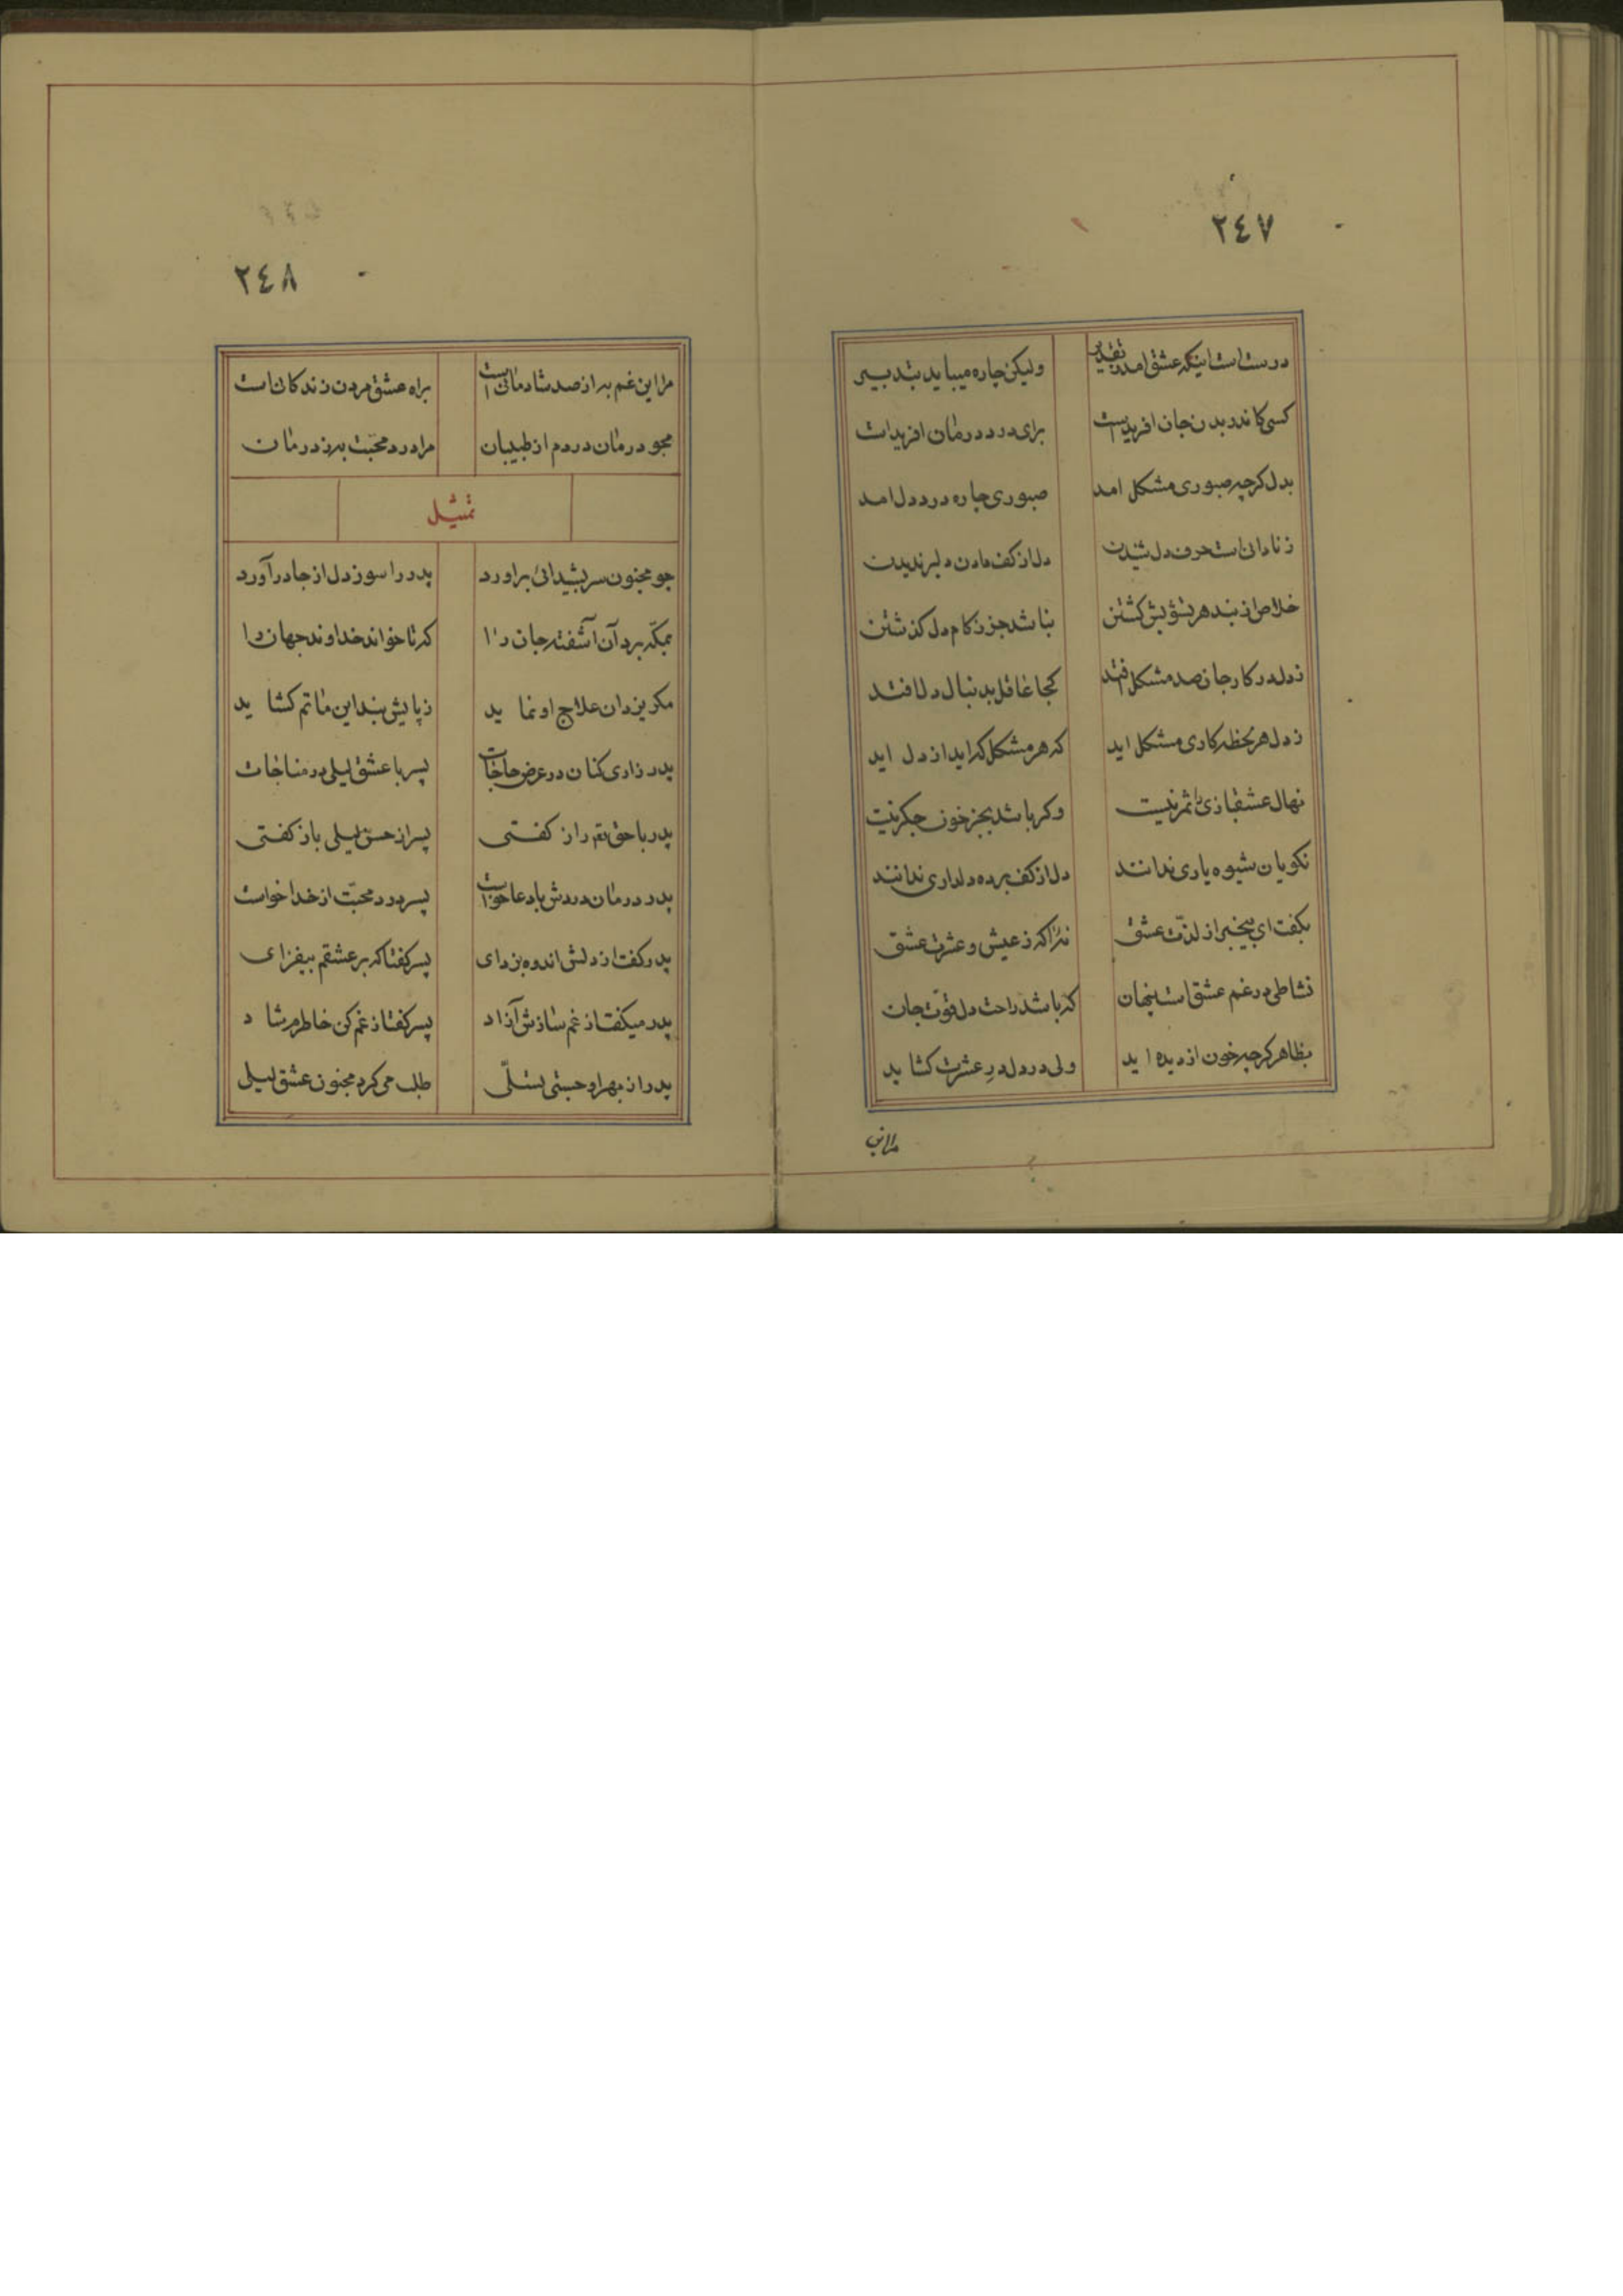 ٢٤٧
درست است اینکه عشق امد بتقدیر ولیکن چاره میباید بتدبیر
کسی کاندر بدن جان افریدست برای درد درمان افریدات
بدل کرچه صبوری مشکل امد صبوری چاره درد دل امد
ز نادانی است حرف دل شنیدن دل از کف دادن و دلبر ندیدن
خلاص از بند هر تشویش کشتن نباشد جز ز کام دل کذشتن
ز دل در کار جان صد مشکل افتد کجا عاقل بدنبال دل افتد
ز دل هر لحظه کاری مشکل اید که هر مشکل که اید از دل اید
نهال عشقبازی را ثمر نیست وکر باشد بجز خون جکر نیت
نکویان شیوه یاری ندانند دل از کف برده دلداری ندانند
بکفت ای بیخبر از لذت عشق نه اکه ز عیش و عشرت عشق
نشاطی در غم عشق است پنهان که باشد راحت دل قوّت جان
بظاهر کرچه خون از دیده اید ولی در دل درِ عشرت کشاید
مرا این
٢٤٨
مرا این غم به از صد شادمانی است براه عشق مردن زندکانی است
مجو درمان دردم از طبیبان مرا درد محبّت به ز درمان
تمثیل
چو مجنون سر بشیدائی براورد پدر را سوز دل از جا درآورد
بمکّه برد آن آشفته جان را که تا خواند خداوند جهان را
مکر یزدان علاج او نماید ز پایش بند این ماتم کشاید
پدر زاری کنان در عرض حاجات پسر با عشق لیلی در مناجات
پدر با حق تعم راز کفتی پسر از حسن لیلی باز کفتی
پدر درمان دردش با دعا خواست پسر درد محبّت از خدا خواست
پدر کفت از دلش اندوه بزدای پسر کفتا که بر عشقم بیفزای
پدر میکفت از غم سازش آزاد پسر کفتا ز غم کن خاطرم شاد
پدر از بهر او جستی تسلّی طلب می کرد مجنون عشق لیلی